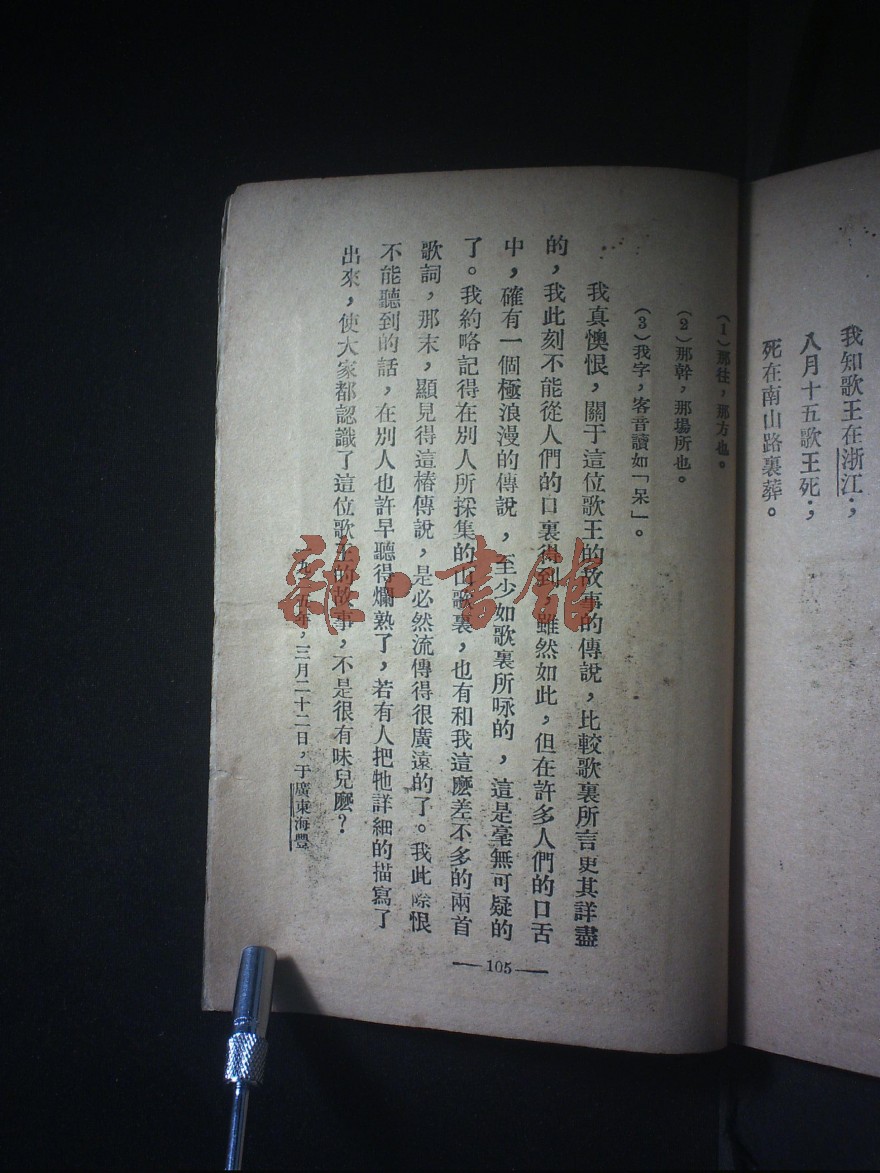 我知歌王在浙江；
八月十五歌王死；
死在南山路裏葬。
（1）那往，那方也。
（2）那幹，那場所也。
（3）我字，客音讀如「呆」。
我真懊恨，關于這位歌王的故事的傳說，比較歌裏所言更其詳盡
的，我此刻不能從人們的口裏得到。雖然如此，但在許多人們的口舌
中，確有一個極浪漫的傳說，至少如歌裏所咏的，這是毫無可疑的
了。我約略記得在別人所採集的山歌裏，也有和我這麼差不多的兩首
歌詞，那末，顯見得這樁傳說，是必然流傳得很廣遠的了。我此際恨
不能聽到的話，在別人也許早聽得爛熟了，若有人把牠詳細的描寫了
出來，使大家都認識了這位歌王的故事，不是很有味兒麽？
五年，三月二十二日，于廣東海豐
—105—
雜·書館